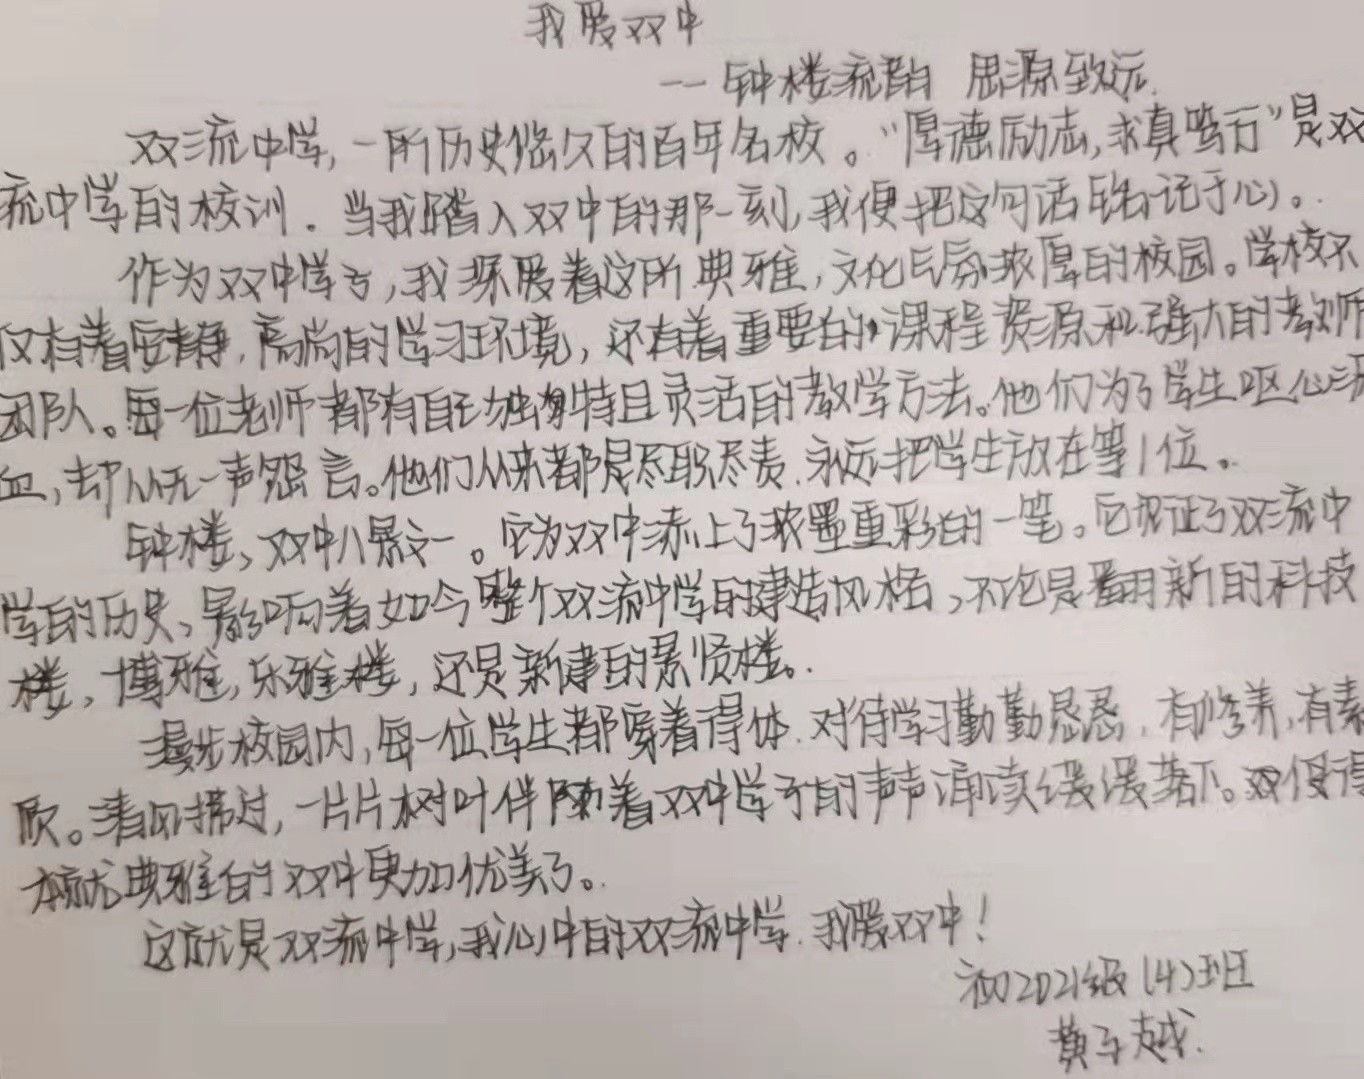 我爱双中
——钟楼流韵 思源致远
双流中学,一所历史悠久的百年名校。“厚德励志,求真笃行”是双
流中学的校训。当我踏入双中的那一刻,我便把这句话铭记于心。
作为双中学子,我深爱着这所典雅,文化气氛浓厚的校园。学校不
仅有着安静,高尚的学习环境,还有着重要的课程资源和强大的教师
团队。每一位老师都有自己独特且灵活的教学方法。他们为了学生呕心沥
血,却从无一声怨言。他们从来都是尽职尽责,永远把学生放在第1位。
钟楼,双中八景之一。它为双中添上了浓墨重彩的一笔。它见证了双流中
学的历史,影响着如今整个双流中学的建造风格,不论是翻新的科技
楼,博雅,乐雅楼,还是新建的景贤楼。
漫步校园内,每一位学生都穿着得体,对待学习勤勤恳恳,有修养,有素
质。清风拂过,一片片树叶伴随着双中学子的声声诵读缓缓落下。使得
本就典雅的双中更加优美了。
这就是双流中学,我心中的双流中学,我爱双中!
初2021级(4)班
黄子越